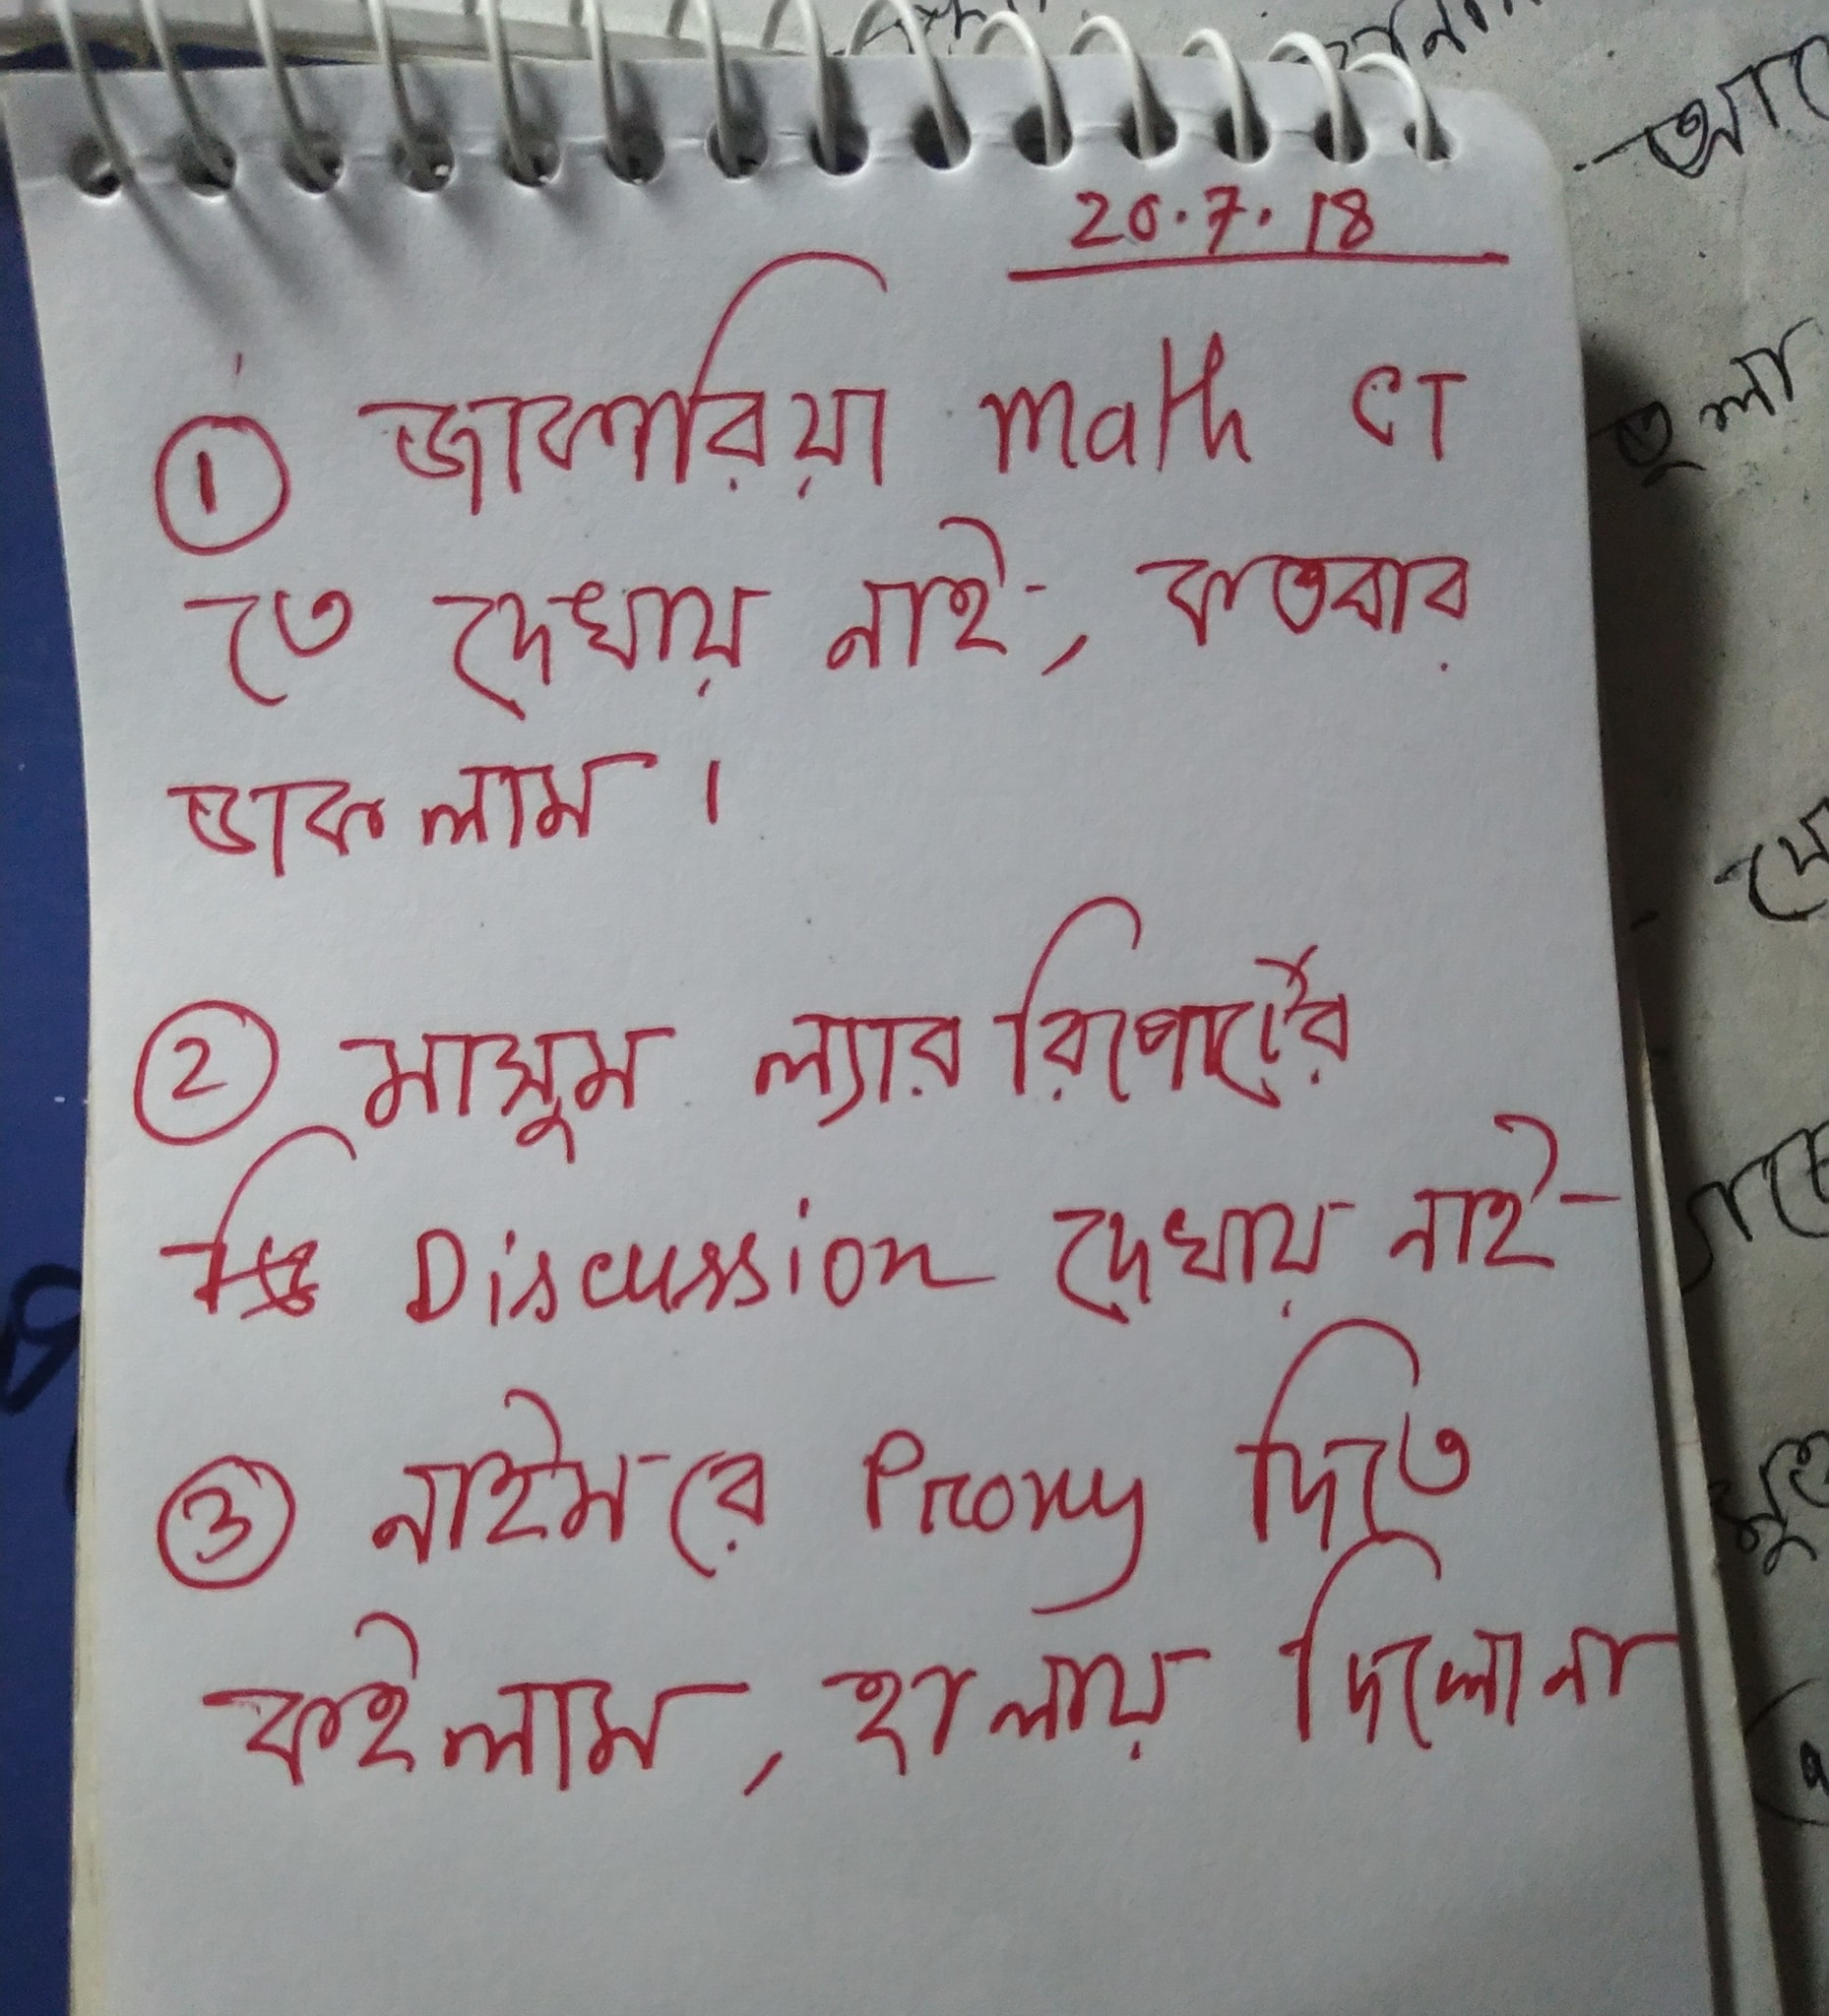 20.7.18
① জাকারিয়া Math CT
তে দেখায় নাই, কতবার
ডাকলাম।
② মাসুম ল্যাব রিপোর্টের
Discussion দেখায় নাই
③ নাইমরে Proxy দিতে
কইলাম, হালায় দিলোনা